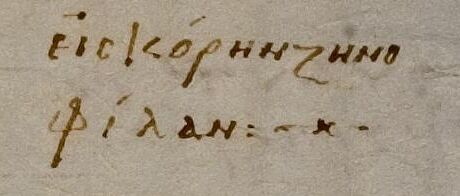 εἰς κόρην ζηνο
φίλαν:-×-